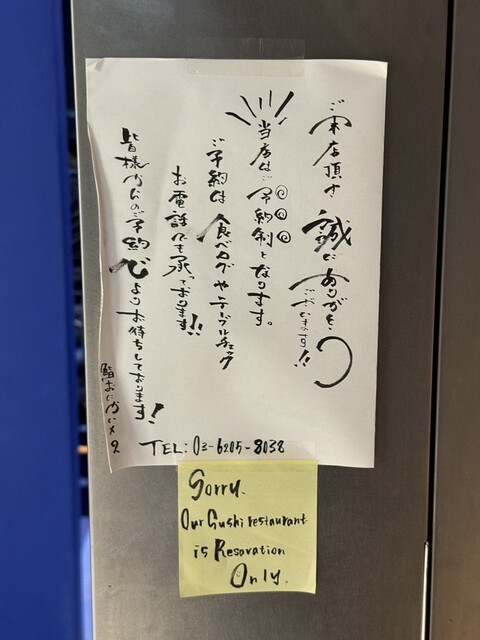 ご来店頂き誠にありがとうございます!!
当店はご予約制となります。
ご予約は食べログやテーブルチェック
お電話でも承っております!!
皆様からのご予約心よりお待ちしております!
鮨おにかい×2
TEL:03-6205-8038
Sorry.
Our Sushi restaurant
is Resavation
Only.